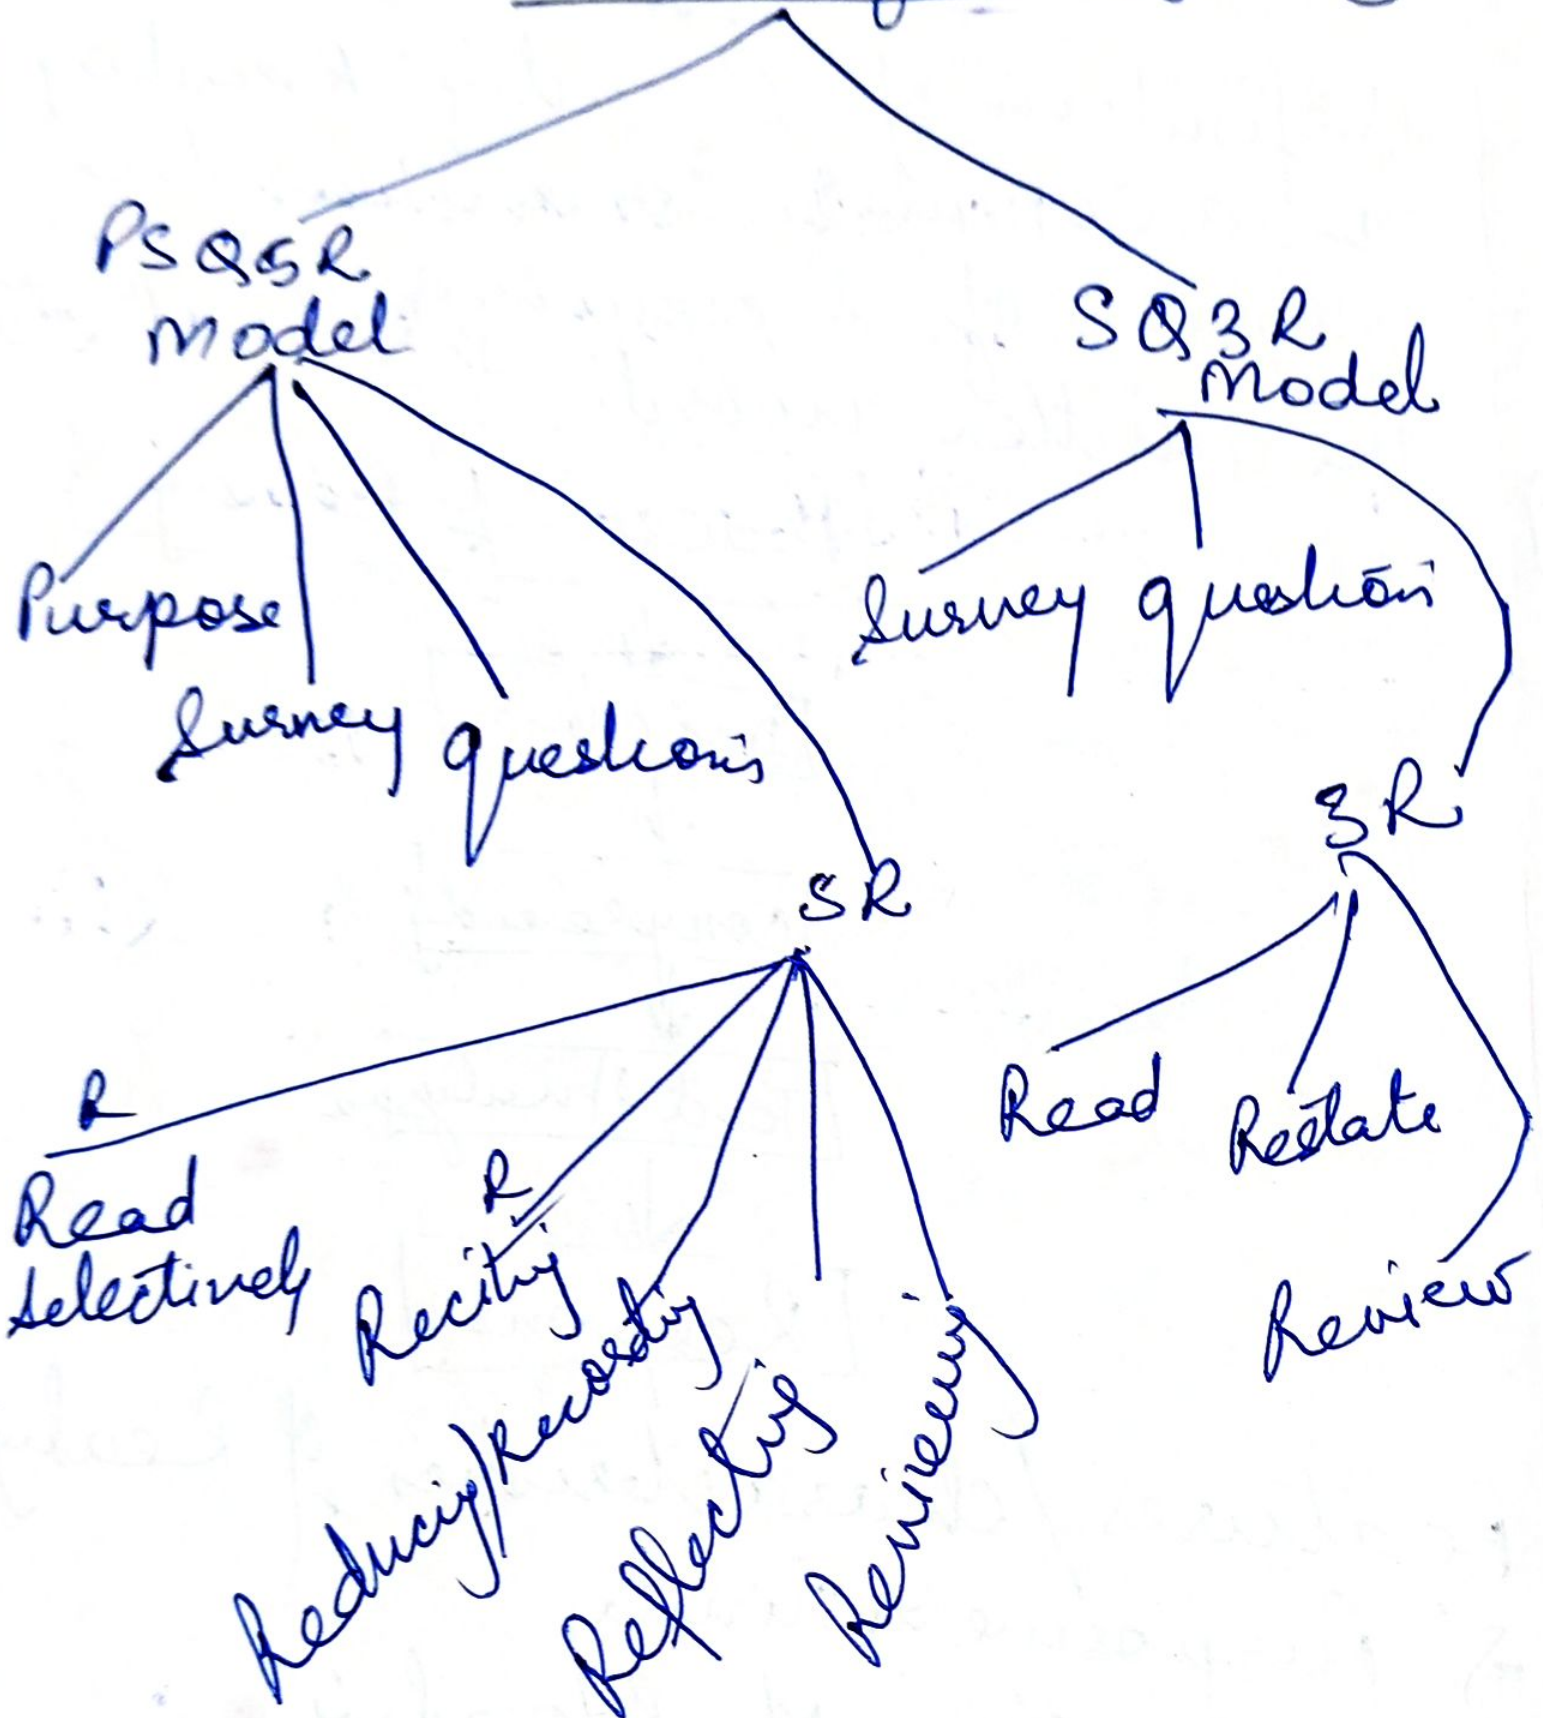 PSQ5R
Model
SQ3R
Model
Purpose
Survey questions
Survey questions
5R
3R
R
Read
selectively
R
Reciting
Reducing/Recording
Reflecting
Reviewing
Read
Restate
Review